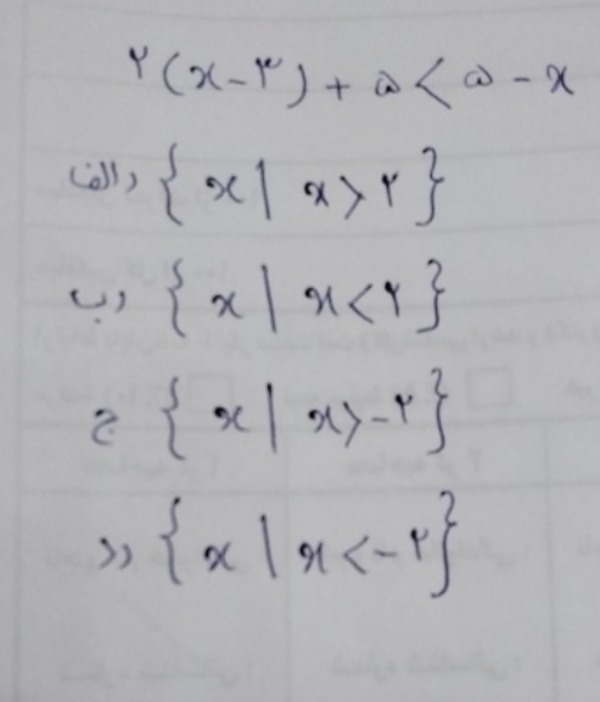 ۲(x-۳)+۵<۵-x
الف) {x | x>۲}
ب) {x | x<۲}
ج {x | x>-۲}
د) {x | x<-۲}